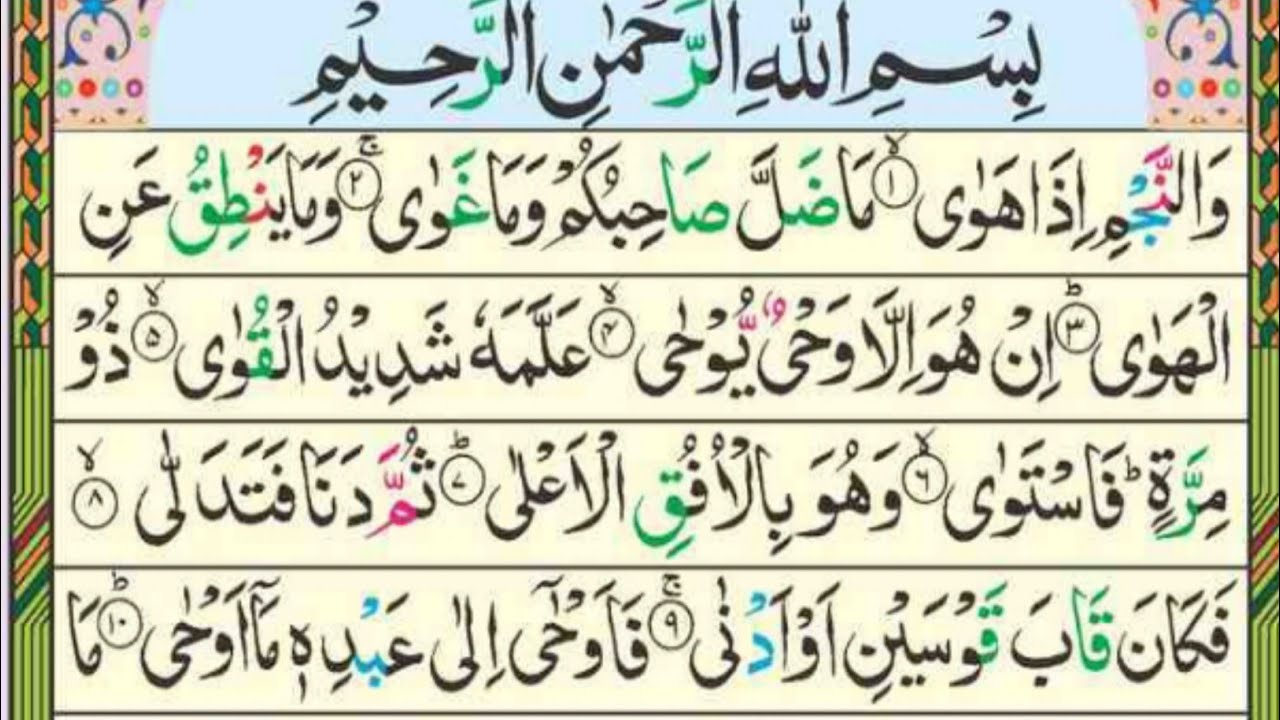 بِسْمِ اللّٰهِ الرَّحْمٰنِ الرَّحِيْمِ
وَالنَّجْمِ اِذَا هَوٰى ۙ﴿۱﴾ مَا ضَلَّ صَاحِبُكُمْ وَمَا غَوٰى ۚ﴿۲﴾ وَمَا يَنْطِقُ عَنِ
الْهَوٰى ؕ﴿۳﴾ اِنْ هُوَ اِلَّا وَحْىٌ يُّوْحٰى ۙ﴿۴﴾ عَلَّمَهٗ شَدِيْدُ الْقُوٰى ۙ﴿۵﴾ ذُوْ
مِرَّةٍ ؕ فَاسْتَوٰى ۙ﴿۶﴾ وَهُوَ بِالْاُفُقِ الْاَعْلٰى ؕ﴿۷﴾ ثُمَّ دَنَا فَتَدَلّٰى ۙ﴿۸﴾
فَكَانَ قَابَ قَوْسَيْنِ اَوْ اَدْنٰى ۚ﴿۹﴾ فَاَوْحٰۤى اِلٰى عَبْدِهٖ مَاۤ اَوْحٰى ؕ﴿۱۰﴾ مَا